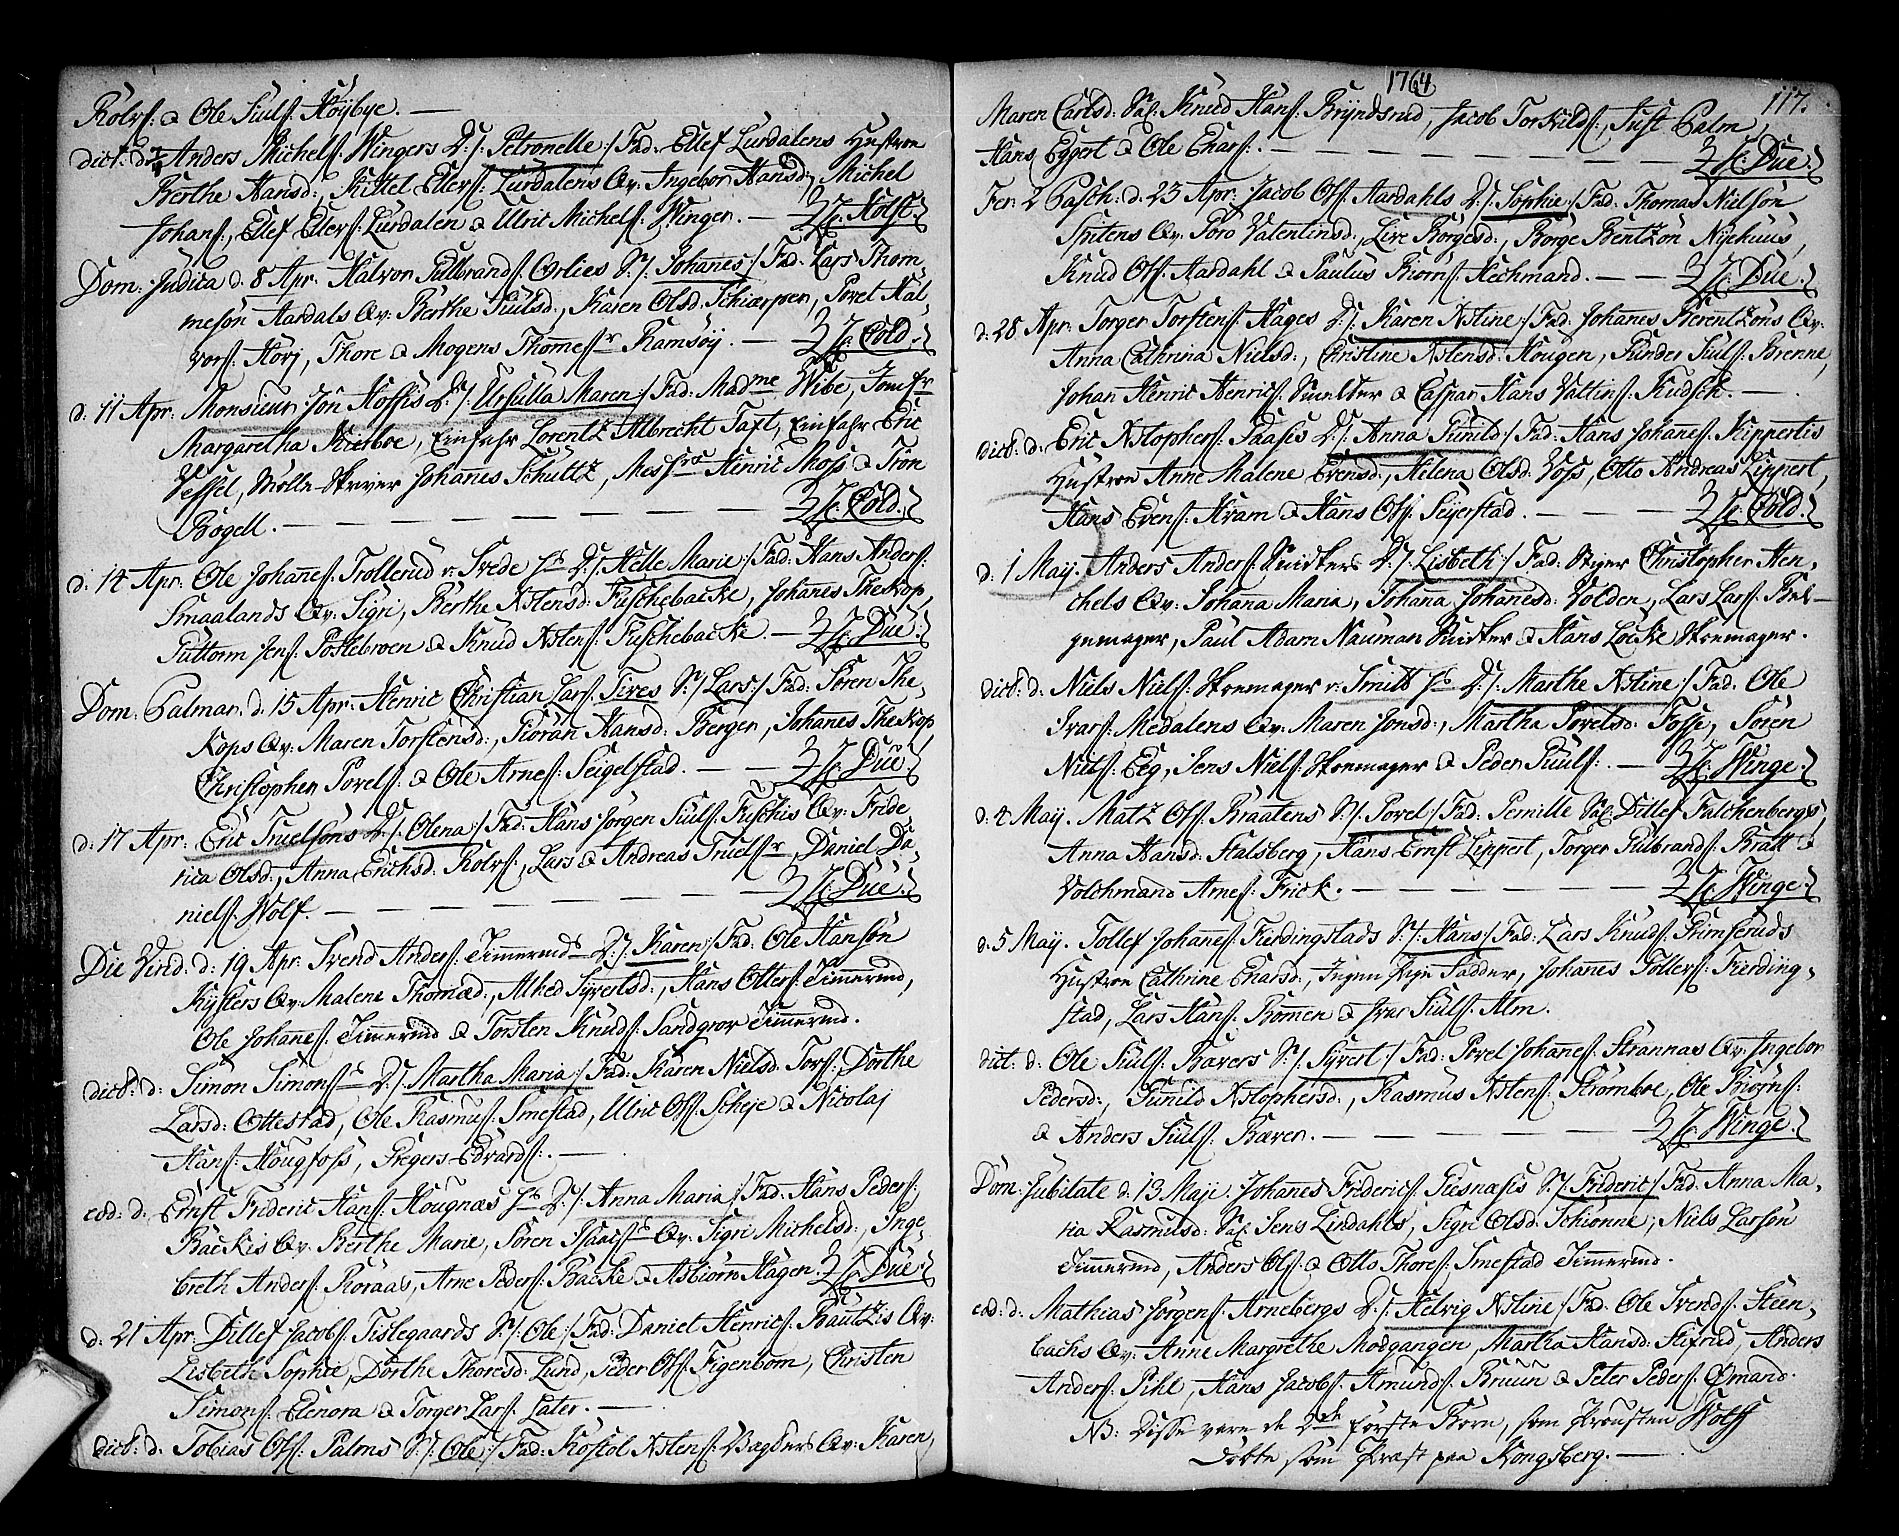 Rolvs: & Ole Siuls: Høybye. —
dict: d: Anders Michels: Wingers D: /: Petronelle :/ Fad: Ellef Lurdalens Hustroe
Berthe Hansd:, Kittel Ellefs: Lurdalens Qv: Ingebor Hansd:, Michel
Johans:, Ellef Ellefs: Lurdalen & Ulric Michels: Winger. — Holst.
Dom: Judica d. 8 Apr. Halvor Gulbrands: Orlies S: /: Johanes :/ Fad. Lars Thom
mesøn Aardals Qv: Berthe Siulsd:, Karen Olsd: Schiærpen, Povel Hal-
vors: Hovj, Thore & Mogens Thomess. Ramsøy. — Cold.
d. 11 Apr: Monsieur Jon Hoffis D: /: Ursulla Maren :/ Fad: Madme Wibe, Jomfr
Margaretha Krieboe, Einfahr Lorentz Albrecht Taft, Einfahr Eric
Vessel, Mølle-Skriver Johanes Schultz, Messrs Henric Moss & Tron
Bogell. — Cold.
d: 14 Apr. Ole Johanes: Trollerud v: Svede D: /: Helle Marie :/ Fad: Hans Anders:
Smaalands Qv: Sigri, Berthe Astensd: Fuschebacke, Johanes Theskop,
Guttorm Jens: Postebroen & Knud Astens: Fuschebacke. — Due.
Dom: Palmar. d. 15 Apr. Henric Christian Lars: Tires S: /: Lars :/ Fad: Søren The-
kops Qv: Maren Torstensd:, Siøran Hansd: Berger, Johanes Theskop
Christopher Povels: & Ole Arnes: Seigelstad. — Due.
d: 17 Apr: Eric Truelsøns D: /: Olena :/ Fad: Hans Jørgen Siuls: Fuschis Qv: Fride-
rica Olsd:, Anna Erichsd: Rolvs:, Lars & Andreas Truelssr, Daniel Da-
niels: Wolf. — Due.
Die Virid. d: 19 Apr: Svend Anders: Timermd D: /: Karen :/ Fad: Ole Hansøn
Kysters Qv: Malene Thomæd:, Alhed Syvertsd:, Hans Ottes: Timermd,
Ole Johanes: Timermd & Torsten Knuds: Sandgrov Timermd.
dict: d: Simon Simons: D: /: Martha Maria :/ Fad: Karen Nielsd: Tors: Dorthe
Larsd: Ottestad, Ole Rasmus: Smestad, Ulric Ols: Scheje & Nicolaj
Hans: Hougfoss, Gregers Edvards:. —
eod: d: Ernst Frideric Hans: Hougnæs D: /: Anna Maria :/ Fad: Hans Peders:
Backis Qv: Berthe Marie, Søren Isaacs: Qv: Sigri Michelsd:, Inge-
breth Anders: Roraas, Arne Peders: Backe & Asbiørn Hagen. Due.
d: 21 Apr: Ditlef Jacobs: Tislegaards S: /: Ole :/ Fad: Daniel Henrics: Bautzis Qv:
Lisbeth Sophie, Dorthe Thoresd: Lund, Peder Ols: Figenbom, Christen
Simons: Elenora & Torger Lars: Later. —
dict: d. Tobias Ols: Palms S: /: Ole :/ Fad: Kostol Astens: Bagders Qv: Karen,
1764
117.
Maren Carlsd: Knud Hans: Bryndsrud, Jacob Torkilds:, Just Palm,
Hans Eggert & Ole Enars:. — Due.
Fer: 2 Pasch: d: 23 Apr: Jacob Ols: Aardahls D: /: Sophie :/ Fad: Thomas Nielsøn
Spitens Qv: Poro Valentinsd:, Live Borgesd:, Borge Bentzøn Nyehuus,
Knud Ols: Aardahl & Paulus Biørns: Heichmand. — Due.
d. 28 Apr: Torger Torstens: Hages D: /: Karen Astine :/ Fad: Johanes Berentzøns Qv:
Anna Cathrina Nielsd:, Christine Astensd: Hougen, Gunder Siuls: Brenne,
Johan Henric Henrics: Smelter & Caspar Hans Valtin: Kudsck. —
dict: d: Eric Astophers: Faasis D: /: Anna Gunild :/ Fad: Hans Johanes: Kippertis
Hustroe Anne Malene Evensd:, Helena Olsd: Voss, Otto Andreas Lippert,
Hans Evens: Kram & Hans Ols: Sejerstad. — Cold.
d: 1 Maij. Anders Anders: Snidkers D: /: Lisbeth :/ Fad: Stiger Christopher Hen-
chels Qv: Johana Maria, Johana Johanesd: Volden, Lars Lars: Bel-
gemager, Paul Adam Nauman Snidker & Hans Locke Skoemager.
dict: d: Niels Niels: Skoemager v: Smith D: /: Marthe Astine :/ Fad: Ole
Ivars: Medalens Qv: Maren Jonsd:, Martha Povelsd: Fosse, Søren
Nils: Eeg, Jens Niels: Skoemager & Peder Siuls: — Winge.
d: 4 Maij. Matz Ols: Braatens S: /: Povel :/ Fad: Pernille Ditlef Falchenbergs,
Anna Hansd: Stalsberg, Hans Ernst Lippert, Torger Gulbrands: Bratt &
Volchmand Arnes: Frick. — Winge.
d. 5 Maij. Tollef Johanes: Fierdingstads S: /: Hans :/ Fad: Lars Knuds: Grimseruds
Hustroe Cathrine Enarsd:, Ingen Pige Sadder, Johanes Tollefs: Fierding-
stad, Lars Hans: Bømen & Iver Siuls: Alm.
dict: d: Ole Siuls: Bævers S: /: Syvert :/ Fad: Povel Johanes: Strannas Qv: Ingebor
Pedersd:, Gunild Astophersd:, Rasmus Astens: Strømboe, Ole Biørns:
& Anders Siuls: Bæver. — Winge.
Dom: Jubilate d. 13 Maji. Johanes Friderics: Giesnæsis S: /: Frideric :/ Fad. Anna Ma-
ria Rasmusd: Jens Lindahls, Sigri Olsd: Schionne, Niels Larsøn
Timermd, Anders Ols: & Otto Thores: Smestad Timermd.
eod: d: Mathias Jørgens: Arnebergs D: /: Helvig Astine :/ Fad: Ole Svends: Steen-
bachs Qv: Anne Margrethe Modgangen, Martha Hansd: Stifrud, Anders
Anders: Pihl, Hans Jacobs: Amunds: Bruun & Peter Peders: Ømand.
NB: Disse vare de 2de første Børn, som Provsten Wolff
døbte som Præst paa Kongsberg. —